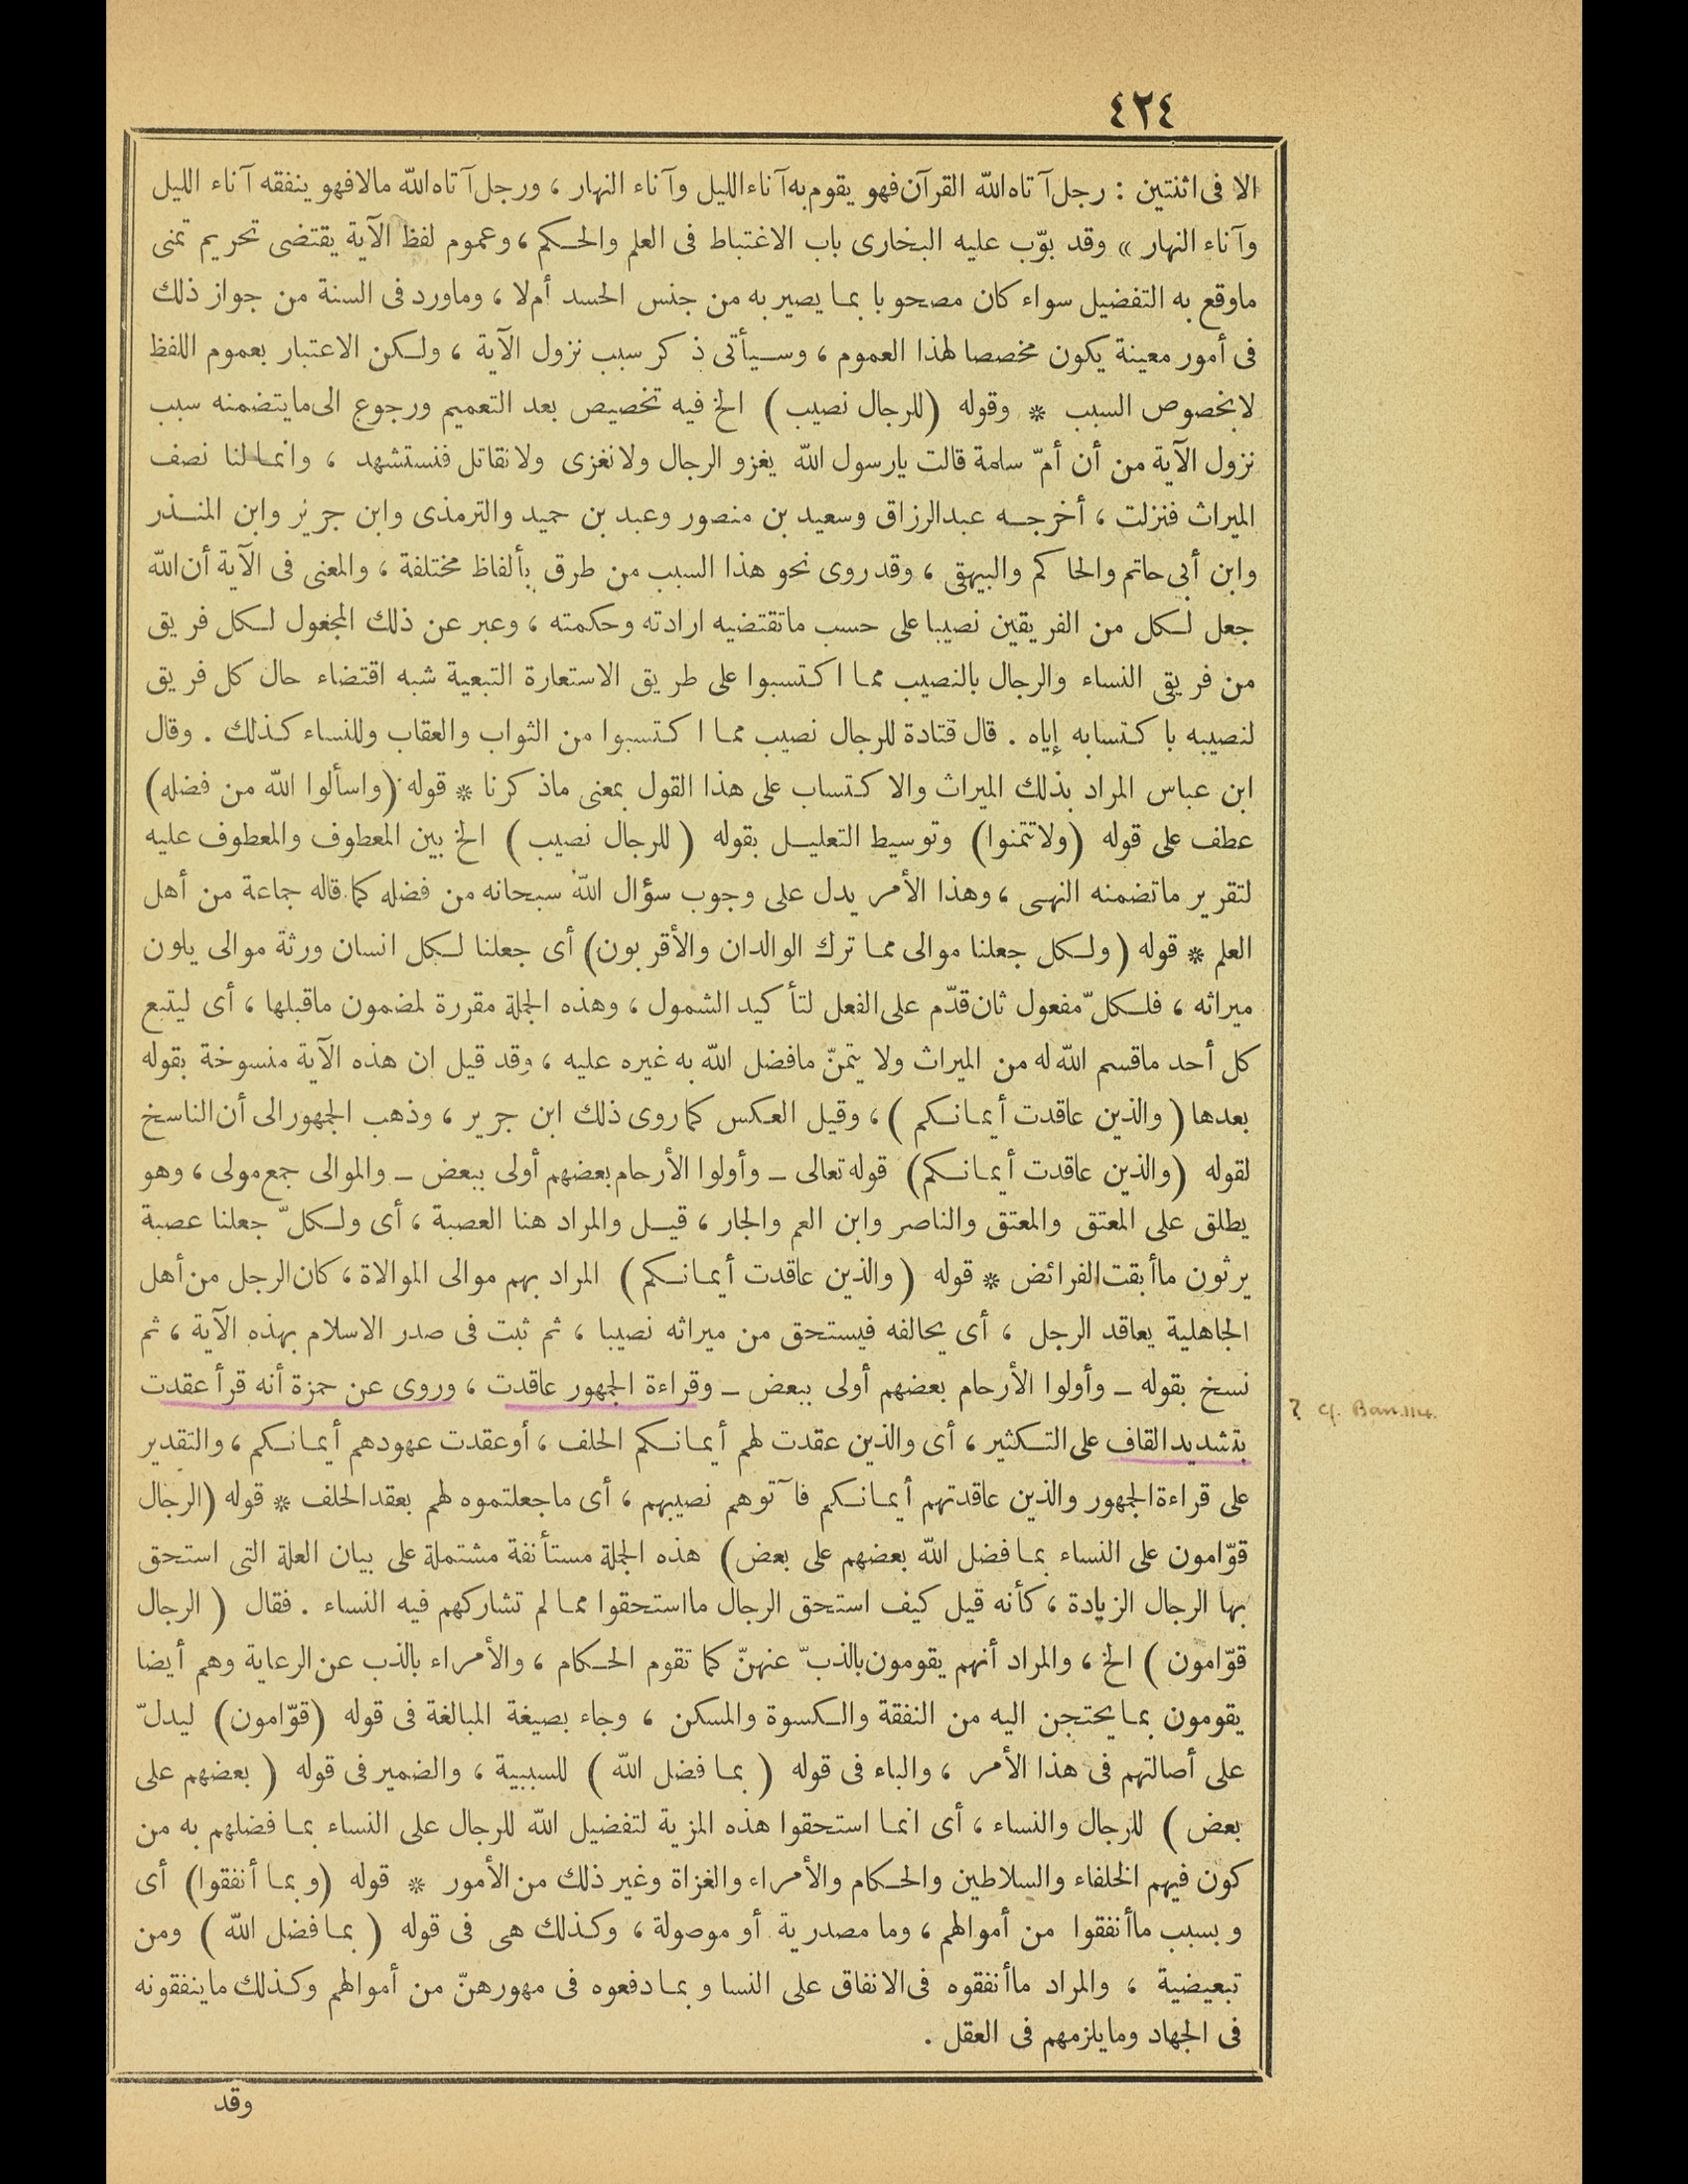 ٤٢٤
الا فى اثنتين : رجل آتاه الله القرآن فهو يقوم به آناء الليل وآناء النهار ، ورجل آتاه الله مالا فهو ينفقه آناء الليل
وآناء النهار » وقد بوّب عليه البخارى باب الاغتباط فى العلم والحكم ، وعموم لفظ الآية يقتضى تحريم تمنى
ماوقع به التفضيل سواء كان مصحوبا بما يصير به من جنس الحسد أم لا ، وماورد فى السنة من جواز ذلك
فى أمور معينة يكون مخصصا لهذا العموم ، وسيأتى ذكر سبب نزول الآية ، ولكن الاعتبار بعموم اللفظ
لابخصوص السبب * وقوله (للرجال نصيب) الخ فيه تخصيص بعد التعميم ورجوع الى مايتضمنه سبب
نزول الآية من أن أمّ سلمة قالت يارسول الله يغزو الرجال ولا نغزى ولا نقاتل فنستشهد ، وانما لنا نصف
الميراث فنزلت ، أخرجه عبدالرزاق وسعيد بن منصور وعبد بن حميد والترمذى وابن جرير وابن المنذر
وابن أبى حاتم والحاكم والبيهقى ، وقد روى نحو هذا السبب من طرق بألفاظ مختلفة ، والمعنى فى الآية أن الله
جعل لكل من الفريقين نصيبا على حسب ماتقتضيه ارادته وحكمته ، وعبر عن ذلك المجعول لكل فريق
من فريقى النساء والرجال بالنصيب مما اكتسبوا على طريق الاستعارة التبعية شبه اقتضاء حال كل فريق
لنصيبه باكتسابه إياه . قال قتادة للرجال نصيب مما اكتسبوا من الثواب والعقاب وللنساء كذلك . وقال
ابن عباس المراد بذلك الميراث والاكتساب على هذا القول بمعنى ماذكرنا * قوله (واسألوا الله من فضله)
عطف على قوله (ولا تتمنوا) وتوسيط التعليل بقوله (للرجال نصيب) الخ بين المعطوف والمعطوف عليه
لتقرير ماتضمنه النهى ، وهذا الأمر يدل على وجوب سؤال الله سبحانه من فضله كما قاله جماعة من أهل
العلم * قوله (ولكل جعلنا موالى مما ترك الوالدان والأقربون) أى جعلنا لكل انسان ورثة موالى يلون
ميراثه ، فلكلّ مفعول ثان قدّم على الفعل لتأكيد الشمول ، وهذه الجملة مقررة لمضمون ماقبلها ، أى ليتبع
كل أحد ماقسم الله له من الميراث ولا يتمنّ مافضل الله به غيره عليه ، وقد قيل ان هذه الآية منسوخة بقوله
بعدها (والذين عاقدت أيمانكم) ، وقيل العكس كما روى ذلك ابن جرير ، وذهب الجمهور الى أن الناسخ
لقوله (والذين عاقدت أيمانكم) قوله تعالى ـ وأولوا الأرحام بعضهم أولى ببعض ـ والموالى جمع مولى ، وهو
يطلق على المعتق والمعتق والناصر وابن العم والجار ، قيل والمراد هنا العصبة ، أى ولكلّ جعلنا عصبة
يرثون ماأبقت الفرائض * قوله (والذين عاقدت أيمانكم) المراد بهم موالى الموالاة ، كان الرجل من أهل
الجاهلية يعاقد الرجل ، أى يحالفه فيستحق من ميراثه نصيبا ، ثم ثبت فى صدر الاسلام بهذه الآية ، ثم
نسخ بقوله ـ وأولوا الأرحام بعضهم أولى ببعض ـ وقراءة الجمهور عاقدت ، وروى عن حمزة أنه قرأ عقدت
? cf. Ban. 114.
بتشديد القاف على التكثير ، أى والذين عقدت لهم أيمانكم الحلف ، أو عقدت عهودهم أيمانكم ، والتقدير
على قراءة الجمهور والذين عاقدتهم أيمانكم فآتوهم نصيبهم ، أى ماجعلتموه لهم بعقد الحلف * قوله (الرجال
قوّامون على النساء بما فضل الله بعضهم على بعض) هذه الجملة مستأنفة مشتملة على بيان العلة التى استحق
بها الرجال الزيادة ، كأنه قيل كيف استحق الرجال مااستحقوا مما لم تشاركهم فيه النساء . فقال (الرجال
قوّامون) الخ ، والمراد أنهم يقومون بالذبّ عنهنّ كما تقوم الحكام ، والأمراء بالذب عن الرعاية وهم أيضا
يقومون بما يحتجن اليه من النفقة والكسوة والمسكن ، وجاء بصيغة المبالغة فى قوله (قوّامون) ليدلّ
على أصالتهم فى هذا الأمر ، والباء فى قوله (بما فضل الله) للسببية ، والضمير فى قوله (بعضهم على
بعض) للرجال والنساء ، أى انما استحقوا هذه المزية لتفضيل الله للرجال على النساء بما فضلهم به من
كون فيهم الخلفاء والسلاطين والحكام والأمراء والغزاة وغير ذلك من الأمور * قوله (وبما أنفقوا) أى
وبسبب ماأنفقوا من أموالهم ، وما مصدرية أو موصولة ، وكذلك هى فى قوله (بما فضل الله) ومن
تبعيضية ، والمراد ماأنفقوه فى الانفاق على النسا وبما دفعوه فى مهورهنّ من أموالهم وكذلك ماينفقونه
فى الجهاد ومايلزمهم فى العقل .
وقد